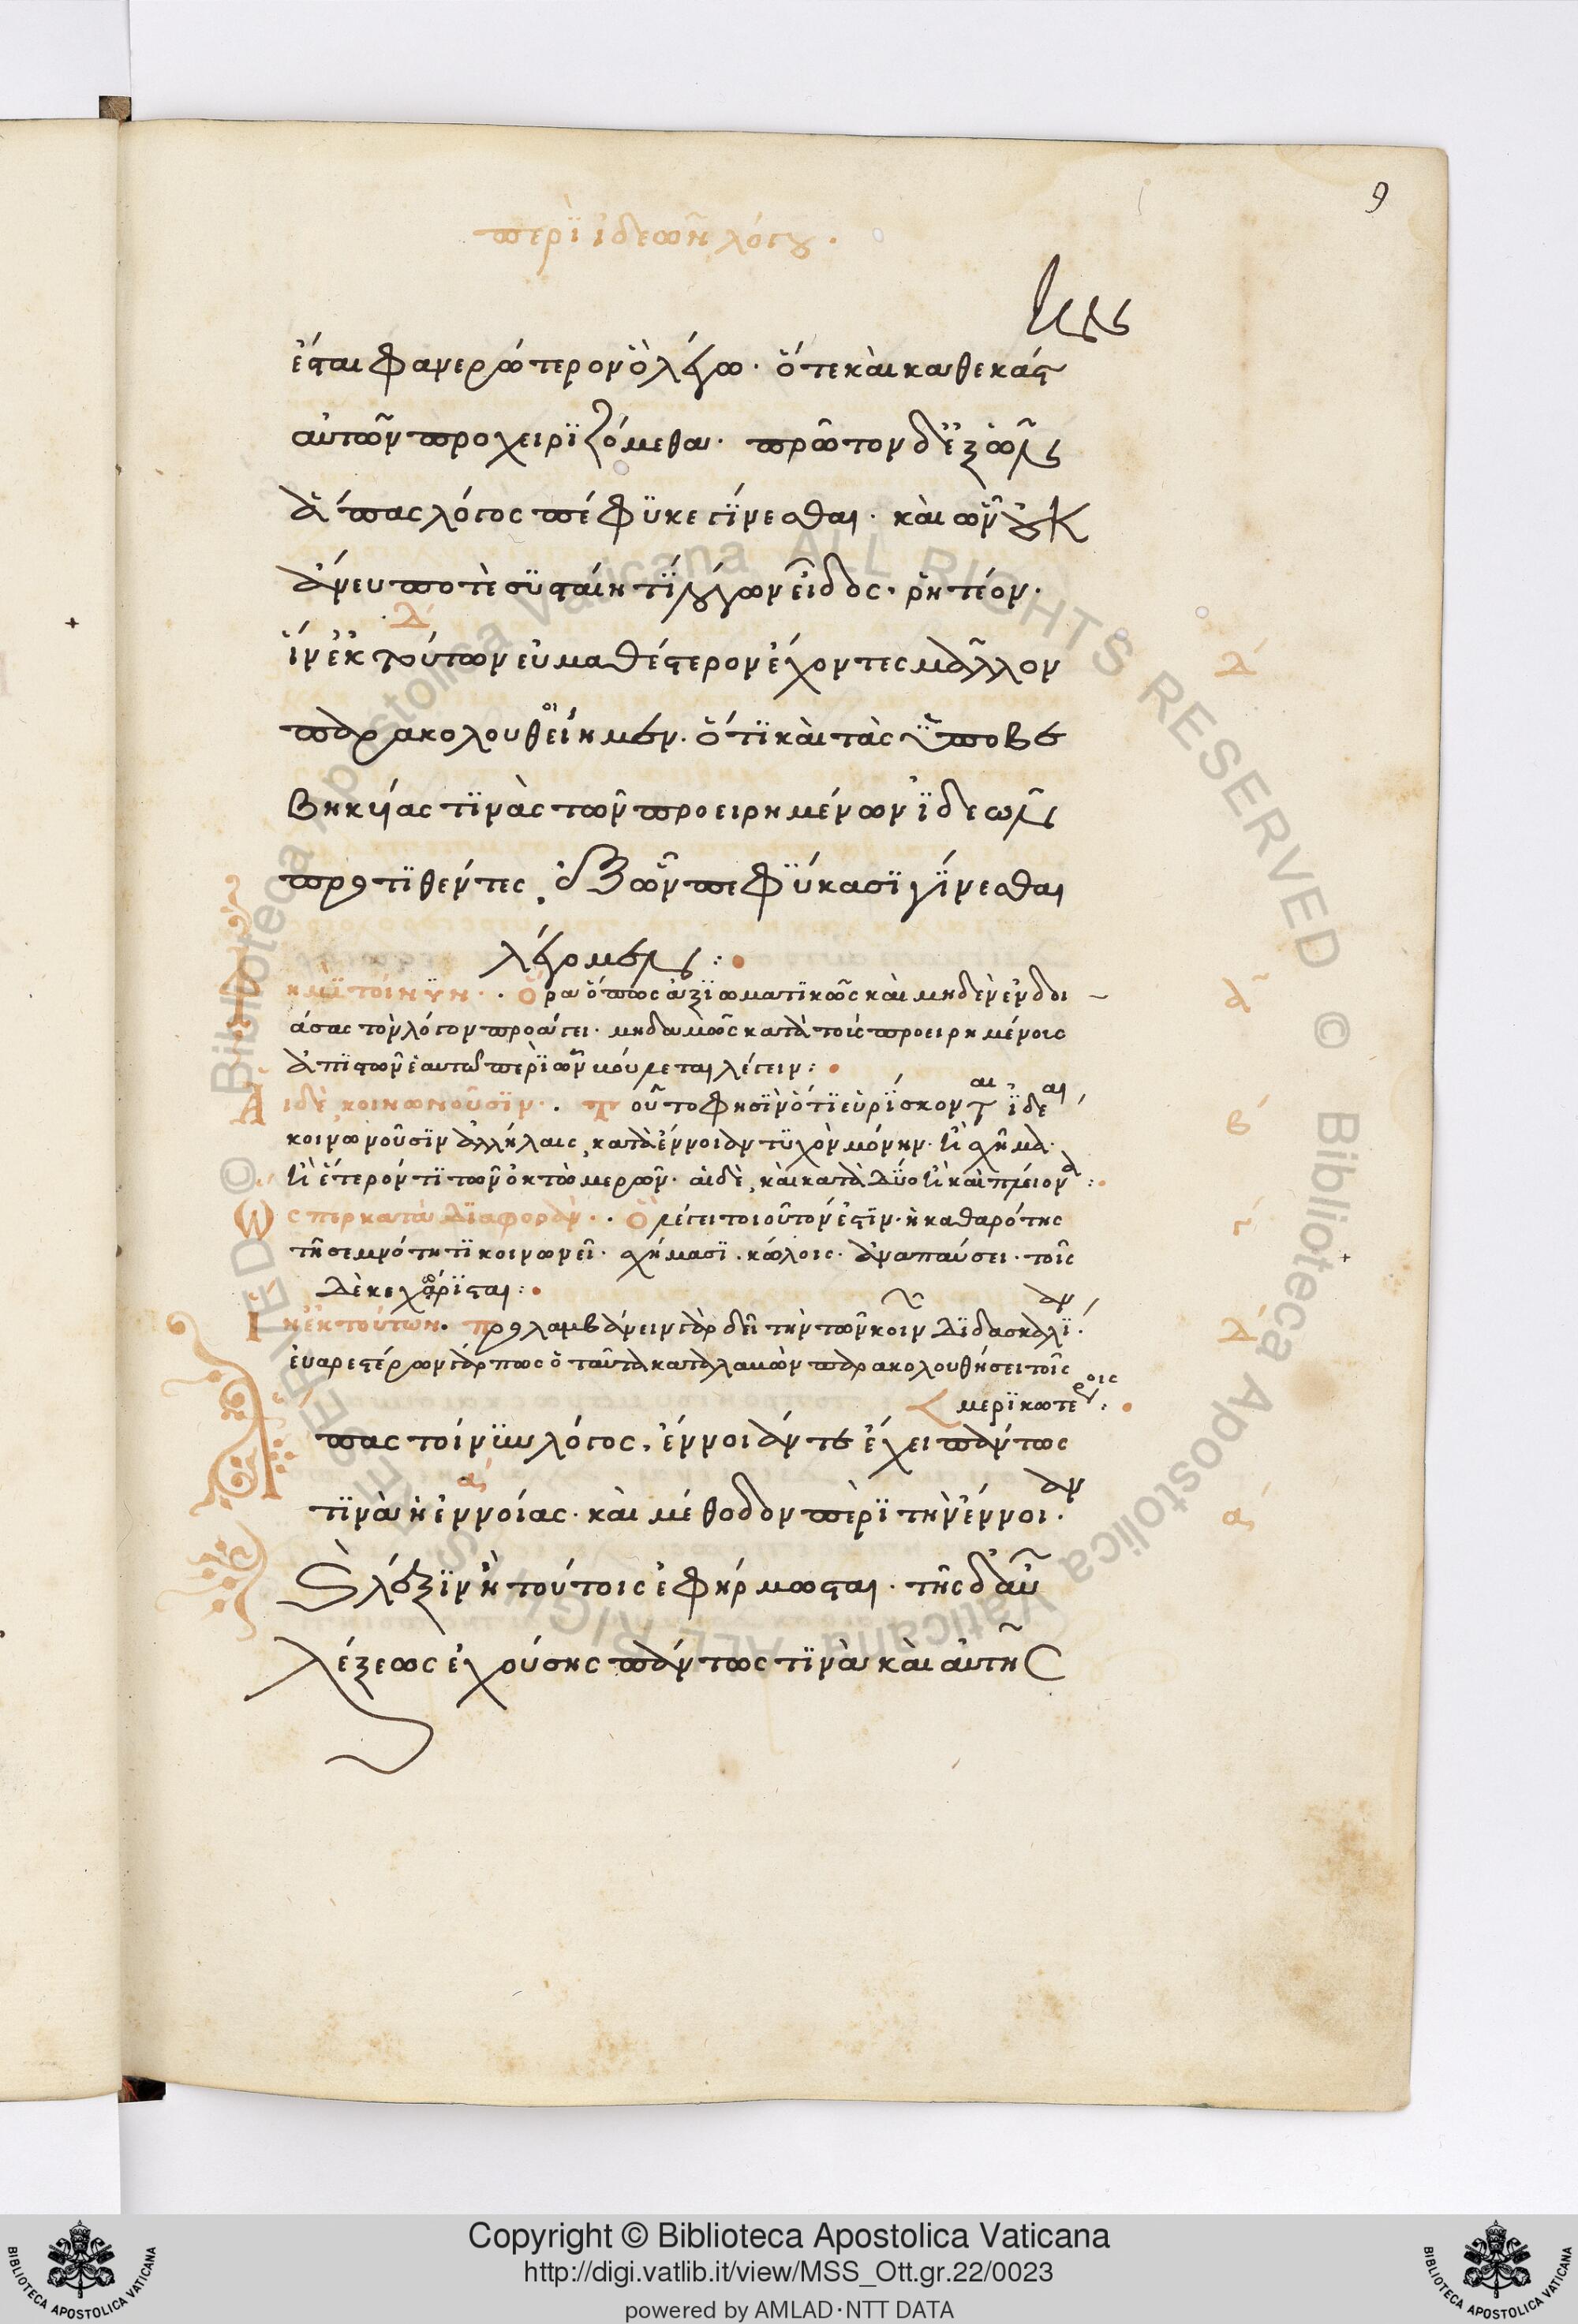 9
περὶ ἰδεῶν λόγου.
ἔσται φανερώτερον ὃ λέγω. ὅτε καὶ καθ' ἕκαστ
αὐτῶν προχειριζόμεθα. πρῶτον δ' ἐξ ὧν
ἅπας λόγος πέφυκε γίνεσθαι. καὶ ὧν οὐκ
ἄνευ ποτὲ συσταίη τι λόγων εἶδος. ῥητέον.
δ'
ἵν' ἐκ τούτων εὐμαθέστερον ἔχοντες μᾶλλον
δ'
παρακολουθείημεν. ὅτι καὶ τὰς ὑποβε
βηκυίας τινὰς τῶν προειρημένων ἰδεῶν
προστιθέντες, ἐξ ὧν πεφύκασι γίνεσθαι
λέγομεν:
ημὶ τοίνυν. Ὅρα ὅπως ἀξιωματικῶς καὶ μηδὲν ἐνδοι
α
άσας τὸν λόγον προάγει. μηδαμῶς κατὰ τοῖς προειρημένοις
ἀπιστῶν ἑαυτῷ περὶ ὧν βούλεται λέγειν:
Αἱ δὲ κοινωνοῦσιν. Τοῦτο φησὶν ὅτι εὑρίσκονται ἰδέαι
κοινωνοῦσιν ἀλλήλαις, κατὰ ἔννοιαν τυχὸν μόνην. ἢ σχῆμα.
β'
ἢ ἕτερόν τι τῶν ὀκτὼ μερῶν. αἱ δὲ, καὶ κατὰ δύο ἢ καὶ πλείονα:
Ὥσπερ κατὰ διαφορὰν. Ὃ λέγει τοιοῦτόν ἐστιν. ἡ καθαρότης
γ'
τῇ σεμνότητι κοινωνεῖ. σχήμασι. κώλοις. ἀναπαύσει. τοῖς
δὲ κεχώρισται:
Ἵν' ἐκ τούτων. προσλαμβάνειν γὰρ δεῖ τὴν τῶν κοινῶν διδασκαλίαν.
δ'
εὐαρεστέρων γάρ πως ὁ ταῦτα καταλαβὼν παρακολουθήσει τοῖς
μερικωτέροις:
πας τοίνυν λόγος, ἔννοιάν τε ἔχει πάντως
α'
τινὰ ἢ ἐννοίας. καὶ μέθοδον περὶ τὴν ἔννοιαν.
α'
καὶ λέξιν ἣ τούτοις ἐφήρμοσται. τῆς δ' αὖ
λέξεως ἐχούσης πάντως τινὰ καὶ αὐτῆς
Copyright © Biblioteca Apostolica Vaticana
http://digi.vatlib.it/view/MSS_Ott.gr.22/0023
powered by AMLAD·NTT DATA